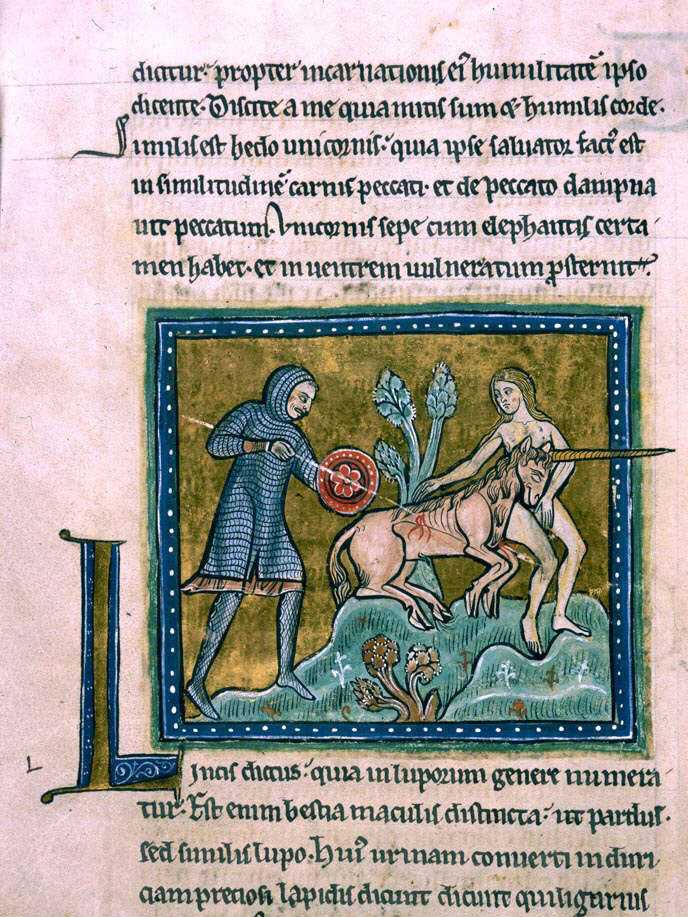 dicitur. propter incarnationis ei' humilitatē ipso
dicente. Discite a me quia mitis sum & humilis corde.
Similis est hedo unicornis. quia ipse saluator fact' est
in similitudinē carnis peccati. et de peccato dampna
uit peccatum. Vnicornis sepe cum elephantis certa
men habet. et in uentrem uulneratum prosternit.
Lincis dictus. quia in luporum genere numera
tur. Est enim bestia maculis distincta. ut pardus.
sed similis lupo. Hui' urinam conuerti in duri
ciam preciosi lapidis dicunt
L